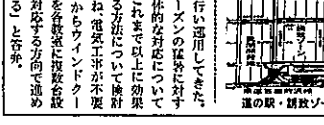 行い運用してきた。
ーズンの猛暑に対す
体的な対応について
これまで以上に効果
る方法について検討
ね、電気工事が不要
からウインドクー
を各教室に複数台設
対応する方向で進め
る」と答弁。
道の駅・誘致ゾ